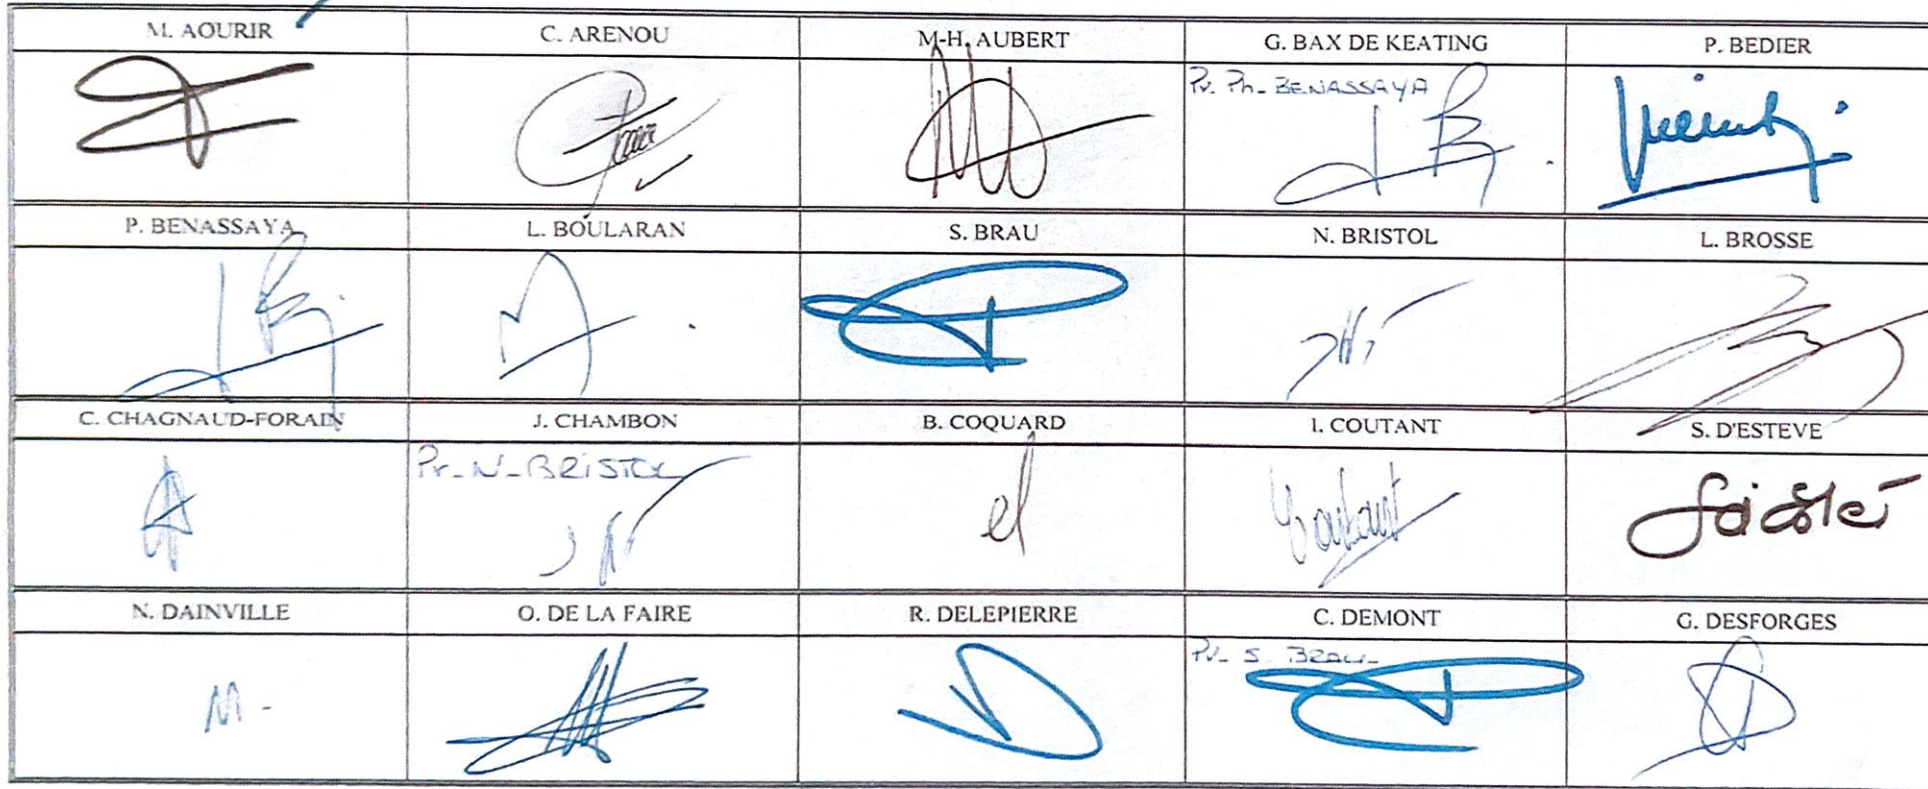 M. AOURIR
C. ARENOU
M-H. AUBERT
G. BAX DE KEATING
P. BEDIER
Pr. Ph. BENASSAYA
P. BENASSAYA
L. BOULARAN
S. BRAU
N. BRISTOL
L. BROSSE
C. CHAGNAUD-FORAIN
J. CHAMBON
B. COQUARD
I. COUTANT
S. D'ESTEVE
Pr. N. BRISTOL
Coutant
N. DAINVILLE
O. DE LA FAIRE
R. DELEPIERRE
C. DEMONT
G. DESFORGES
Pr. S. BRAU